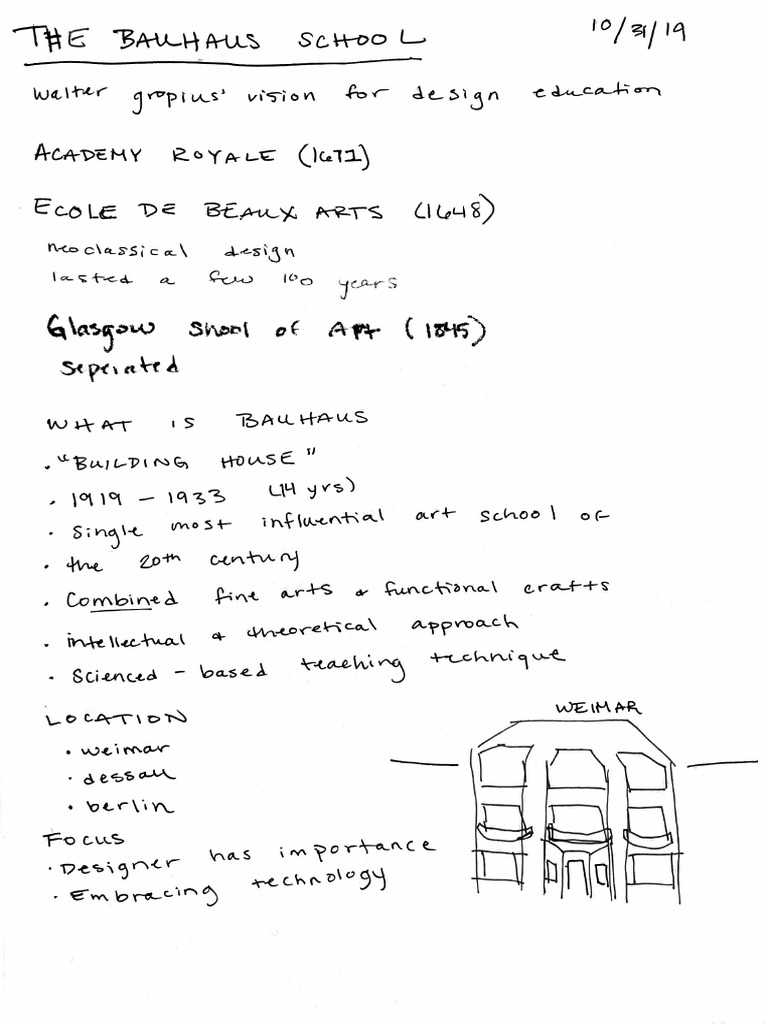 THE BAUHAUS SCHOOL
10/31/19
walter gropius' vision for design education
ACADEMY ROYALE (1671)
ECOLE DE BEAUX ARTS (1648)
neoclassical design
lasted a few 100 years
Glasgow Shool of Art (1845)
seperated
WHAT IS BAUHAUS
• "BUILDING HOUSE"
• 1919 - 1933 (14 yrs)
• Single most influential art school of
• the 20th century
• Combined fine arts & functional crafts
• intellectual & theoretical approach
• Scienced - based teaching technique
LOCATION
• weimar
• dessau
• berlin
WEIMAR
FOCUS
• Designer has importance
• Embracing technology